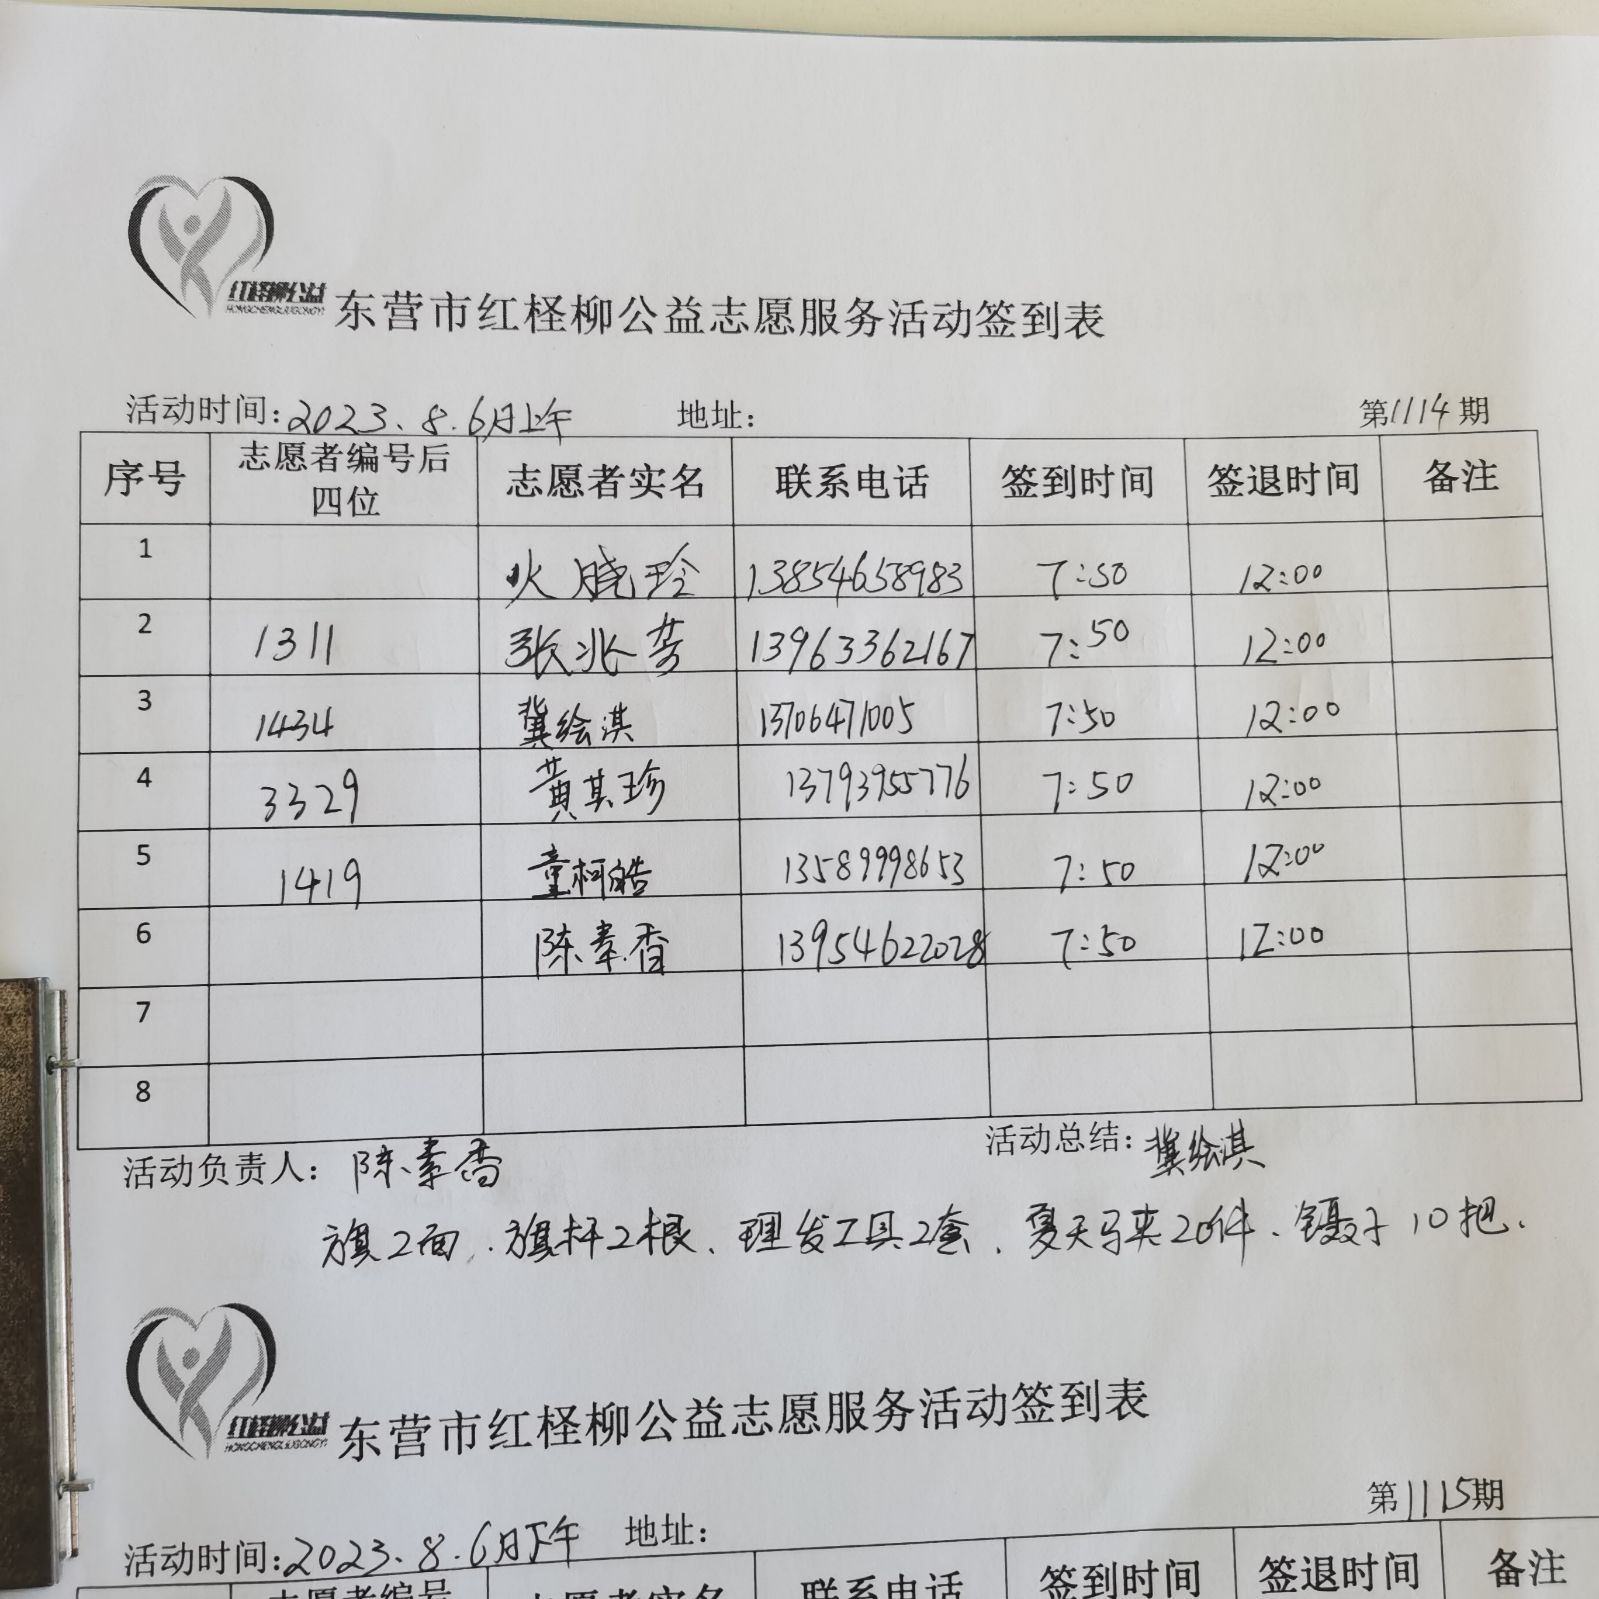 红柽柳公益
HONGCHENGLIUGONGYI
东营市红柽柳公益志愿服务活动签到表
活动时间:2023.8.6日上午 地址: 第1114期
序号 志愿者编号后四位 志愿者实名 联系电话 签到时间 签退时间 备注
1 火晓玲 13854658983 7:50 12:00
2 1311 张兆芳 13963362167 7:50 12:00
3 1434 冀绘淇 13706471005 7:50 12:00
4 3329 黄其珍 13793955776 7:50 12:00
5 1419 童柯皓 13589998653 7:50 12:00
6 陈素香 13954622028 7:50 12:00
7
8
活动负责人: 陈素香 活动总结: 冀绘淇
旗2面、旗杆2根、理发工具2套、夏天马夹20件、镊子10把.
红柽柳公益
HONGCHENGLIUGONGYI
东营市红柽柳公益志愿服务活动签到表
第1115期
活动时间:2023.8.6日下午 地址:
志愿者编号 志愿者实名 联系电话 签到时间 签退时间 备注